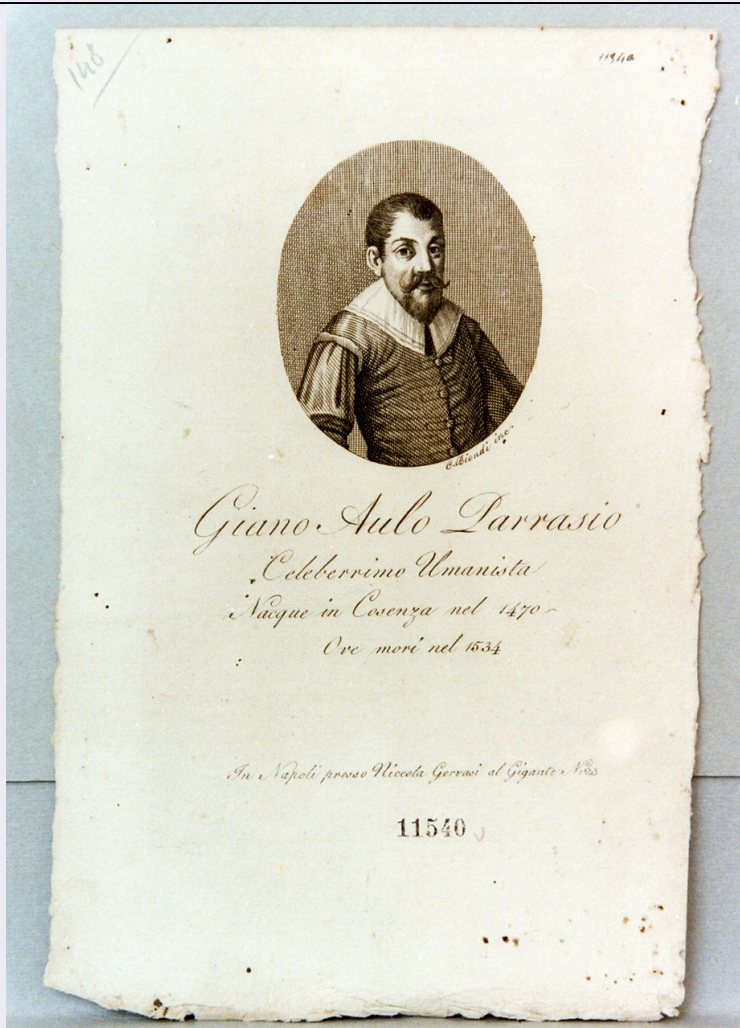 148
11540
C. Biondi inc.
Giano Aulo Parrasio
Celeberrimo Umanista
Nacque in Cosenza nel 1470
Ove morì nel 1534
In Napoli presso Niccola Gervasi al Gigante N. 23
11540